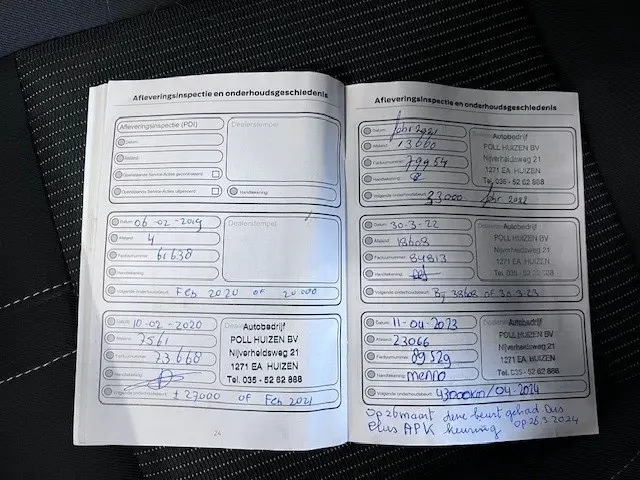 Afleveringsinspectie en onderhoudsgeschiedenis
Afleveringsinspectie (PDI)
Dealerstempel
Datum:
Afstand:
Openstaande Service-Acties gecontroleerd:
Openstaande Service-Acties uitgevoerd:
Handtekening:
Datum: 06-02-2019
Dealerstempel
Afstand: 4
Factuurnummer: 61638
Handtekening:
Volgende onderhoudsbeurt: Feb 2020 of 20000
Datum: 10-02-2020
Autobedrijf
Afstand: 7561
POLL HUIZEN BV
Factuurnummer: 73668
Nijverheidsweg 21
1271 EA HUIZEN
Handtekening:
Tel. 035 - 52 62 888
Volgende onderhoudsbeurt: ± 27000 of Feb 2021
24
Afleveringsinspectie en onderhoudsgeschiedenis
Datum: 2021
Autobedrijf
Afstand: 13660
POLL HUIZEN BV
Factuurnummer: 79954
Nijverheidsweg 21
1271 EA HUIZEN
Handtekening:
Tel. 035 - 52 62 888
Volgende onderhoudsbeurt: 33000 2022
Datum: 30-3-22
Autobedrijf
Afstand: 18603
POLL HUIZEN BV
Factuurnummer: 84813
Nijverheidsweg 21
1271 EA HUIZEN
Handtekening:
Tel. 035 - 52 62 888
Volgende onderhoudsbeurt: By 38603 of 30-3-23
Datum: 11-04-2023
Autobedrijf
Afstand: 23066
POLL HUIZEN BV
Factuurnummer: 89529
Nijverheidsweg 21
1271 EA HUIZEN
Handtekening: menno
Tel. 035 - 52 62 888
Volgende onderhoudsbeurt: 43000km/04-2024
Op 26 maart deze beurt gehad Dus
Plus APK keuring op 26.3.2024